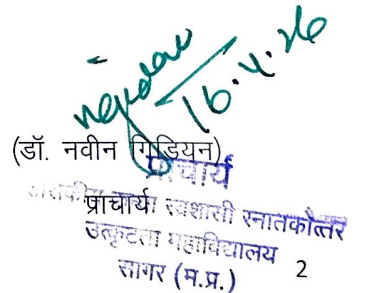 16.4.26
(डॉ. नवीन गिडियन)
प्राचार्य
प्राचार्य स्वशासी स्नातकोत्तर
उत्कृष्टता महाविद्यालय
सागर (म.प्र.) 2